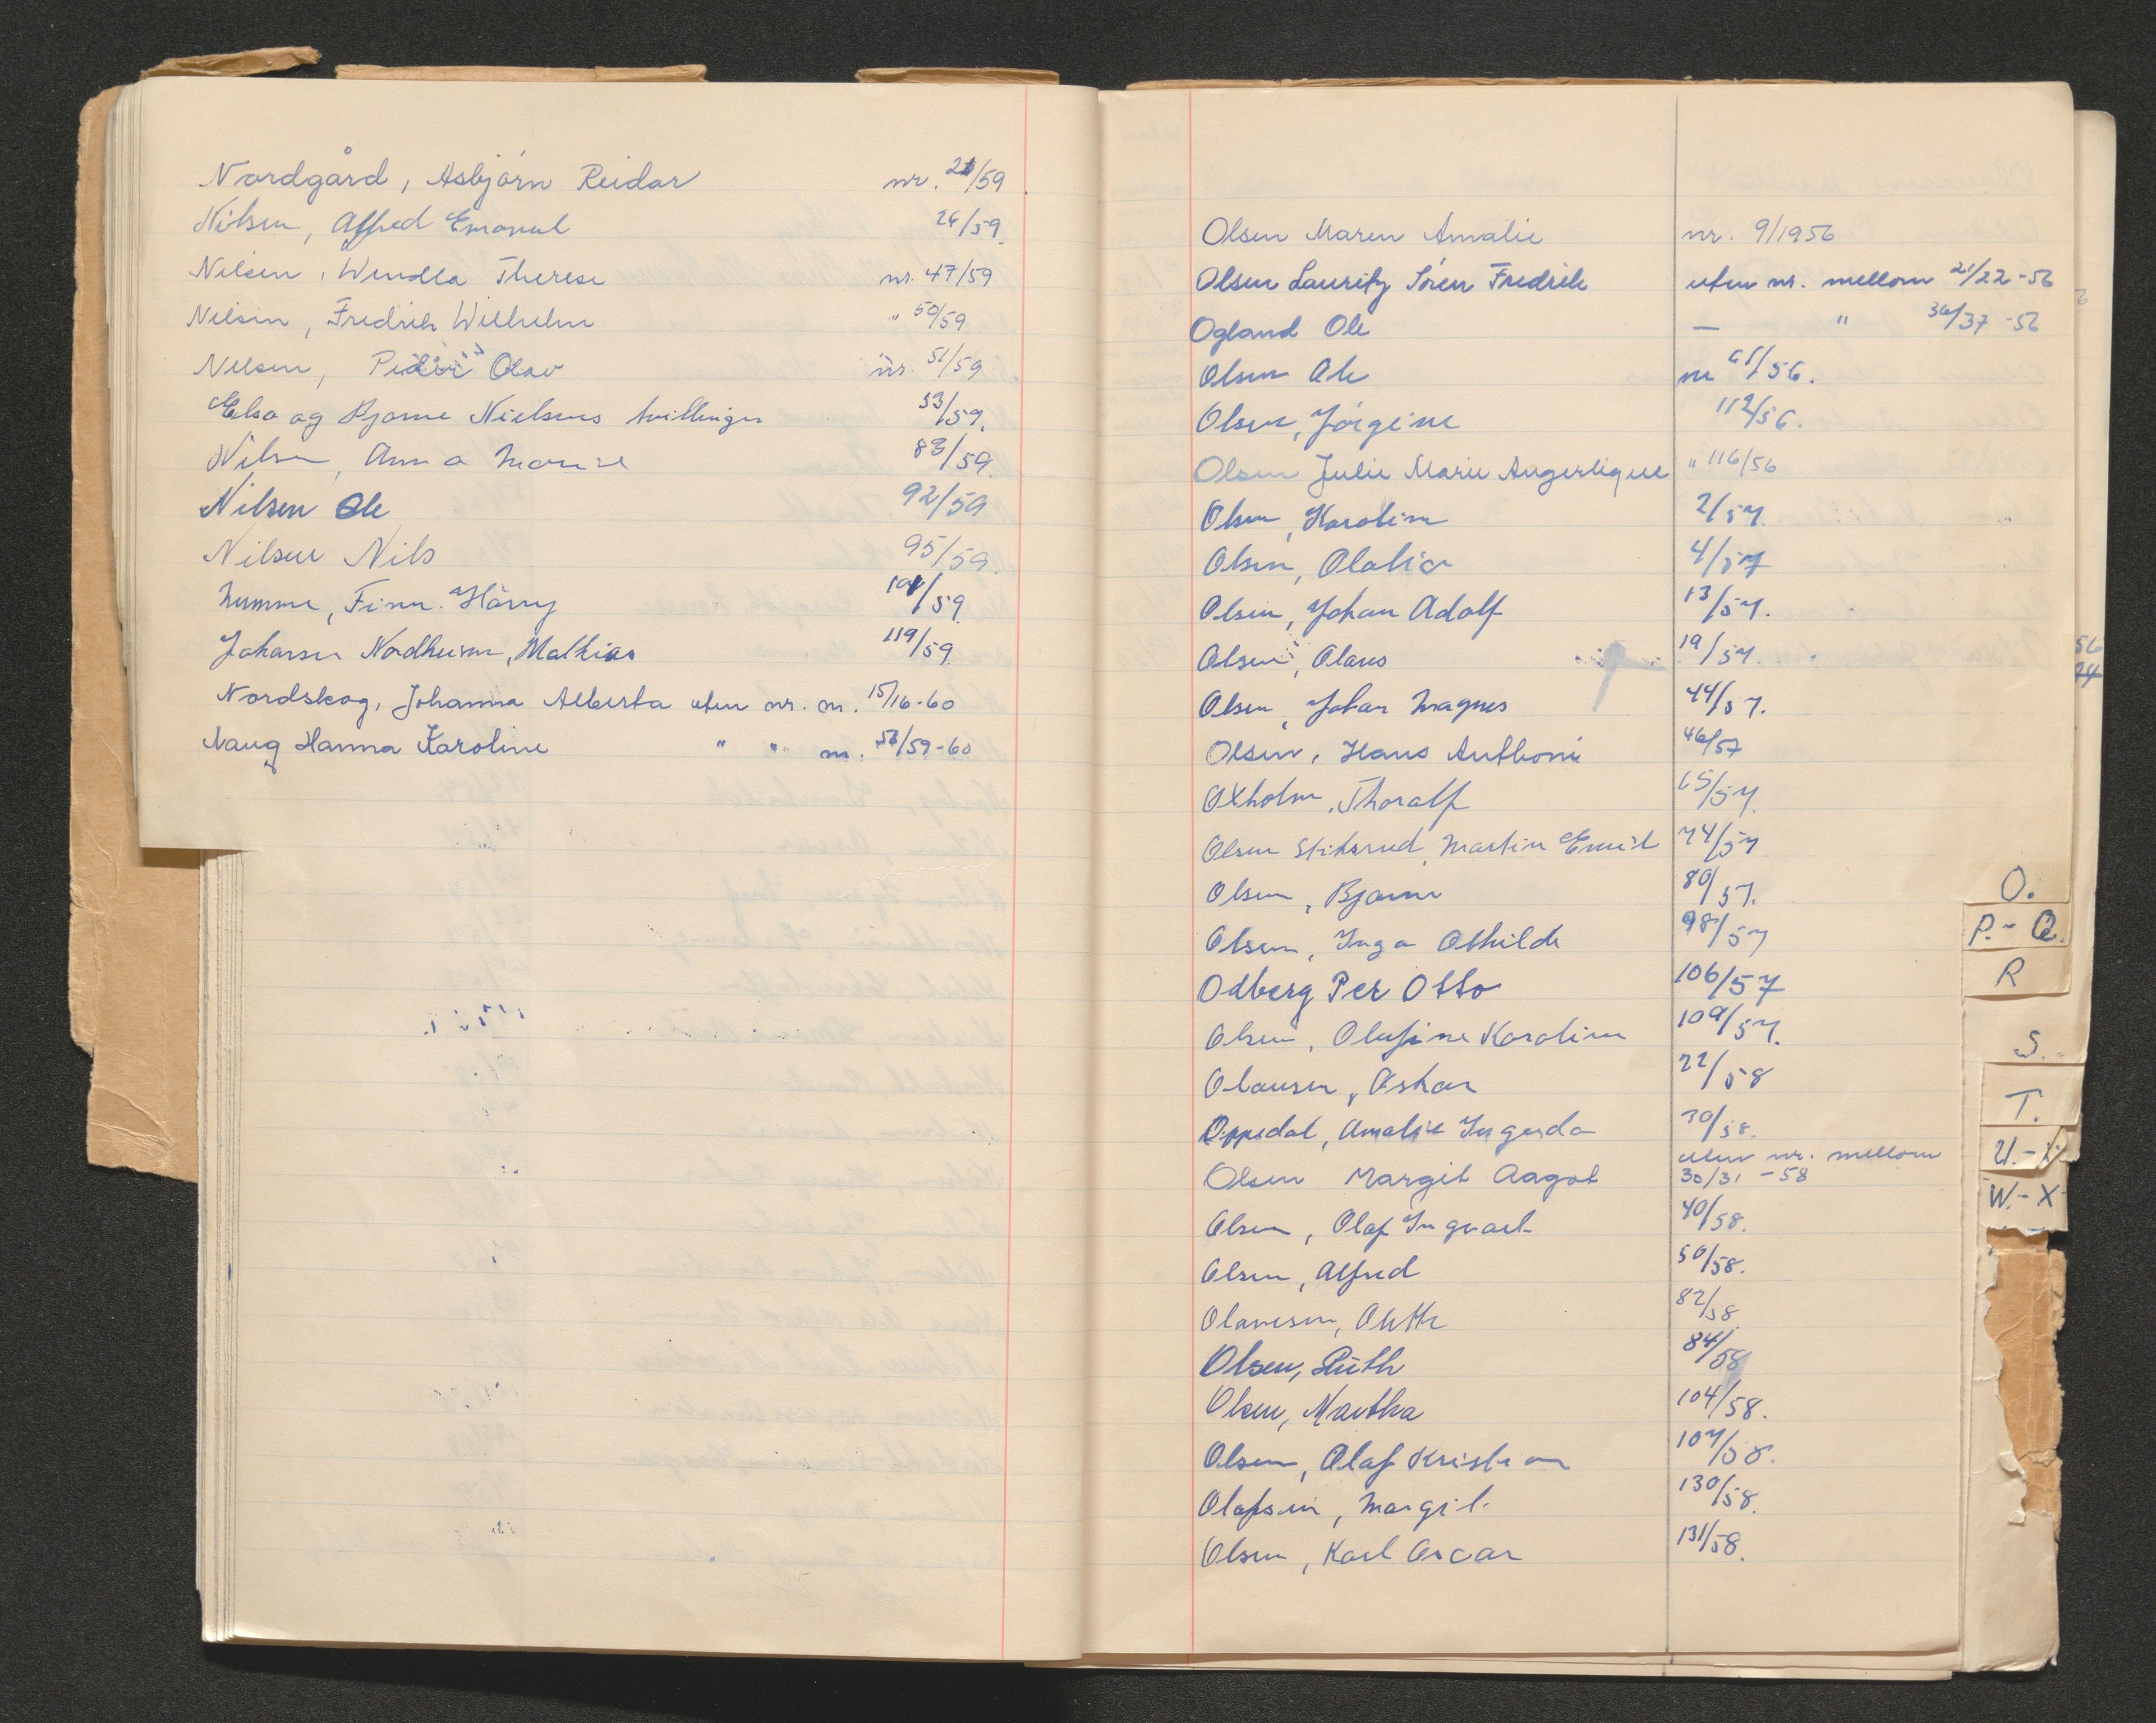 Nordgård, Asbjørn Reidar nr. 21/59
Nilsen, Alfred Emanuel 26/59.
Nilsen, Wendla Therese nr. 47/59
Nilsen, Fredrik Wilhelm " 50/59
Nilsen, Peder Olav nr. 51/59
Elsa og Bjarne Nielsens tvillinger 53/59.
Nilsen, Anna Marie 83/59.
Nilsen Ole 92/59
Nilsen Nils 95/59.
Numme, Finn. Harry /59
Johansen Nordheim, Mathias 119/59
Nordskog, Johanna Alberta uten nr. m. 15/16-60
Naug Hanna Karoline " " m. 58/59-60
Olsen Maren Amalie nr. 9/1956
Olsen Lauritz Sören Fredrik uten nr. mellom 21/22-56
Ogland Ole — " 36/37-56
Olsen Ole nr 65/56.
Olsen, Jörgine 112/56.
Olsen Julie Marie Angerlique " 116/56
Olsen, Karoline 2/57.
Olsen, Olalia 4/57
Olsen, Johan Adolf 13/57.
Olsen, Olaus 19/57.
Olsen, Johan Magnus 44/57.
Olsen, Hans Anthoni 46/57
Oxholm, Thoralf 65/57.
Olsen Stiksrud, Martin Emil 74/57
Olsen, Bjarne 80/57.
Olsen, Inga Othilde 98/57
Odberg Per Otto 106/57
Olsen, Olufine Karoline 109/57.
Olausen, Oskar 22/58
Oppedal, Amalie Ingerda 30/58.
Olsen Margit Aagot uten nr. mellom
30/31 -58
Olsen, Olaf Ingvart 40/58.
Olsen, Alfred 50/58.
Olavesen, Olette 82/58.
Olsen, Ruth 84/58
Olsen, Martha 104/58.
Olsen, Olaf Kristian 107/58.
Olafsen, Margit 130/58.
Olsen, Karl Oscar 131/58.
O.
P.-Q.
R
S.
T.
U.-
W.-X